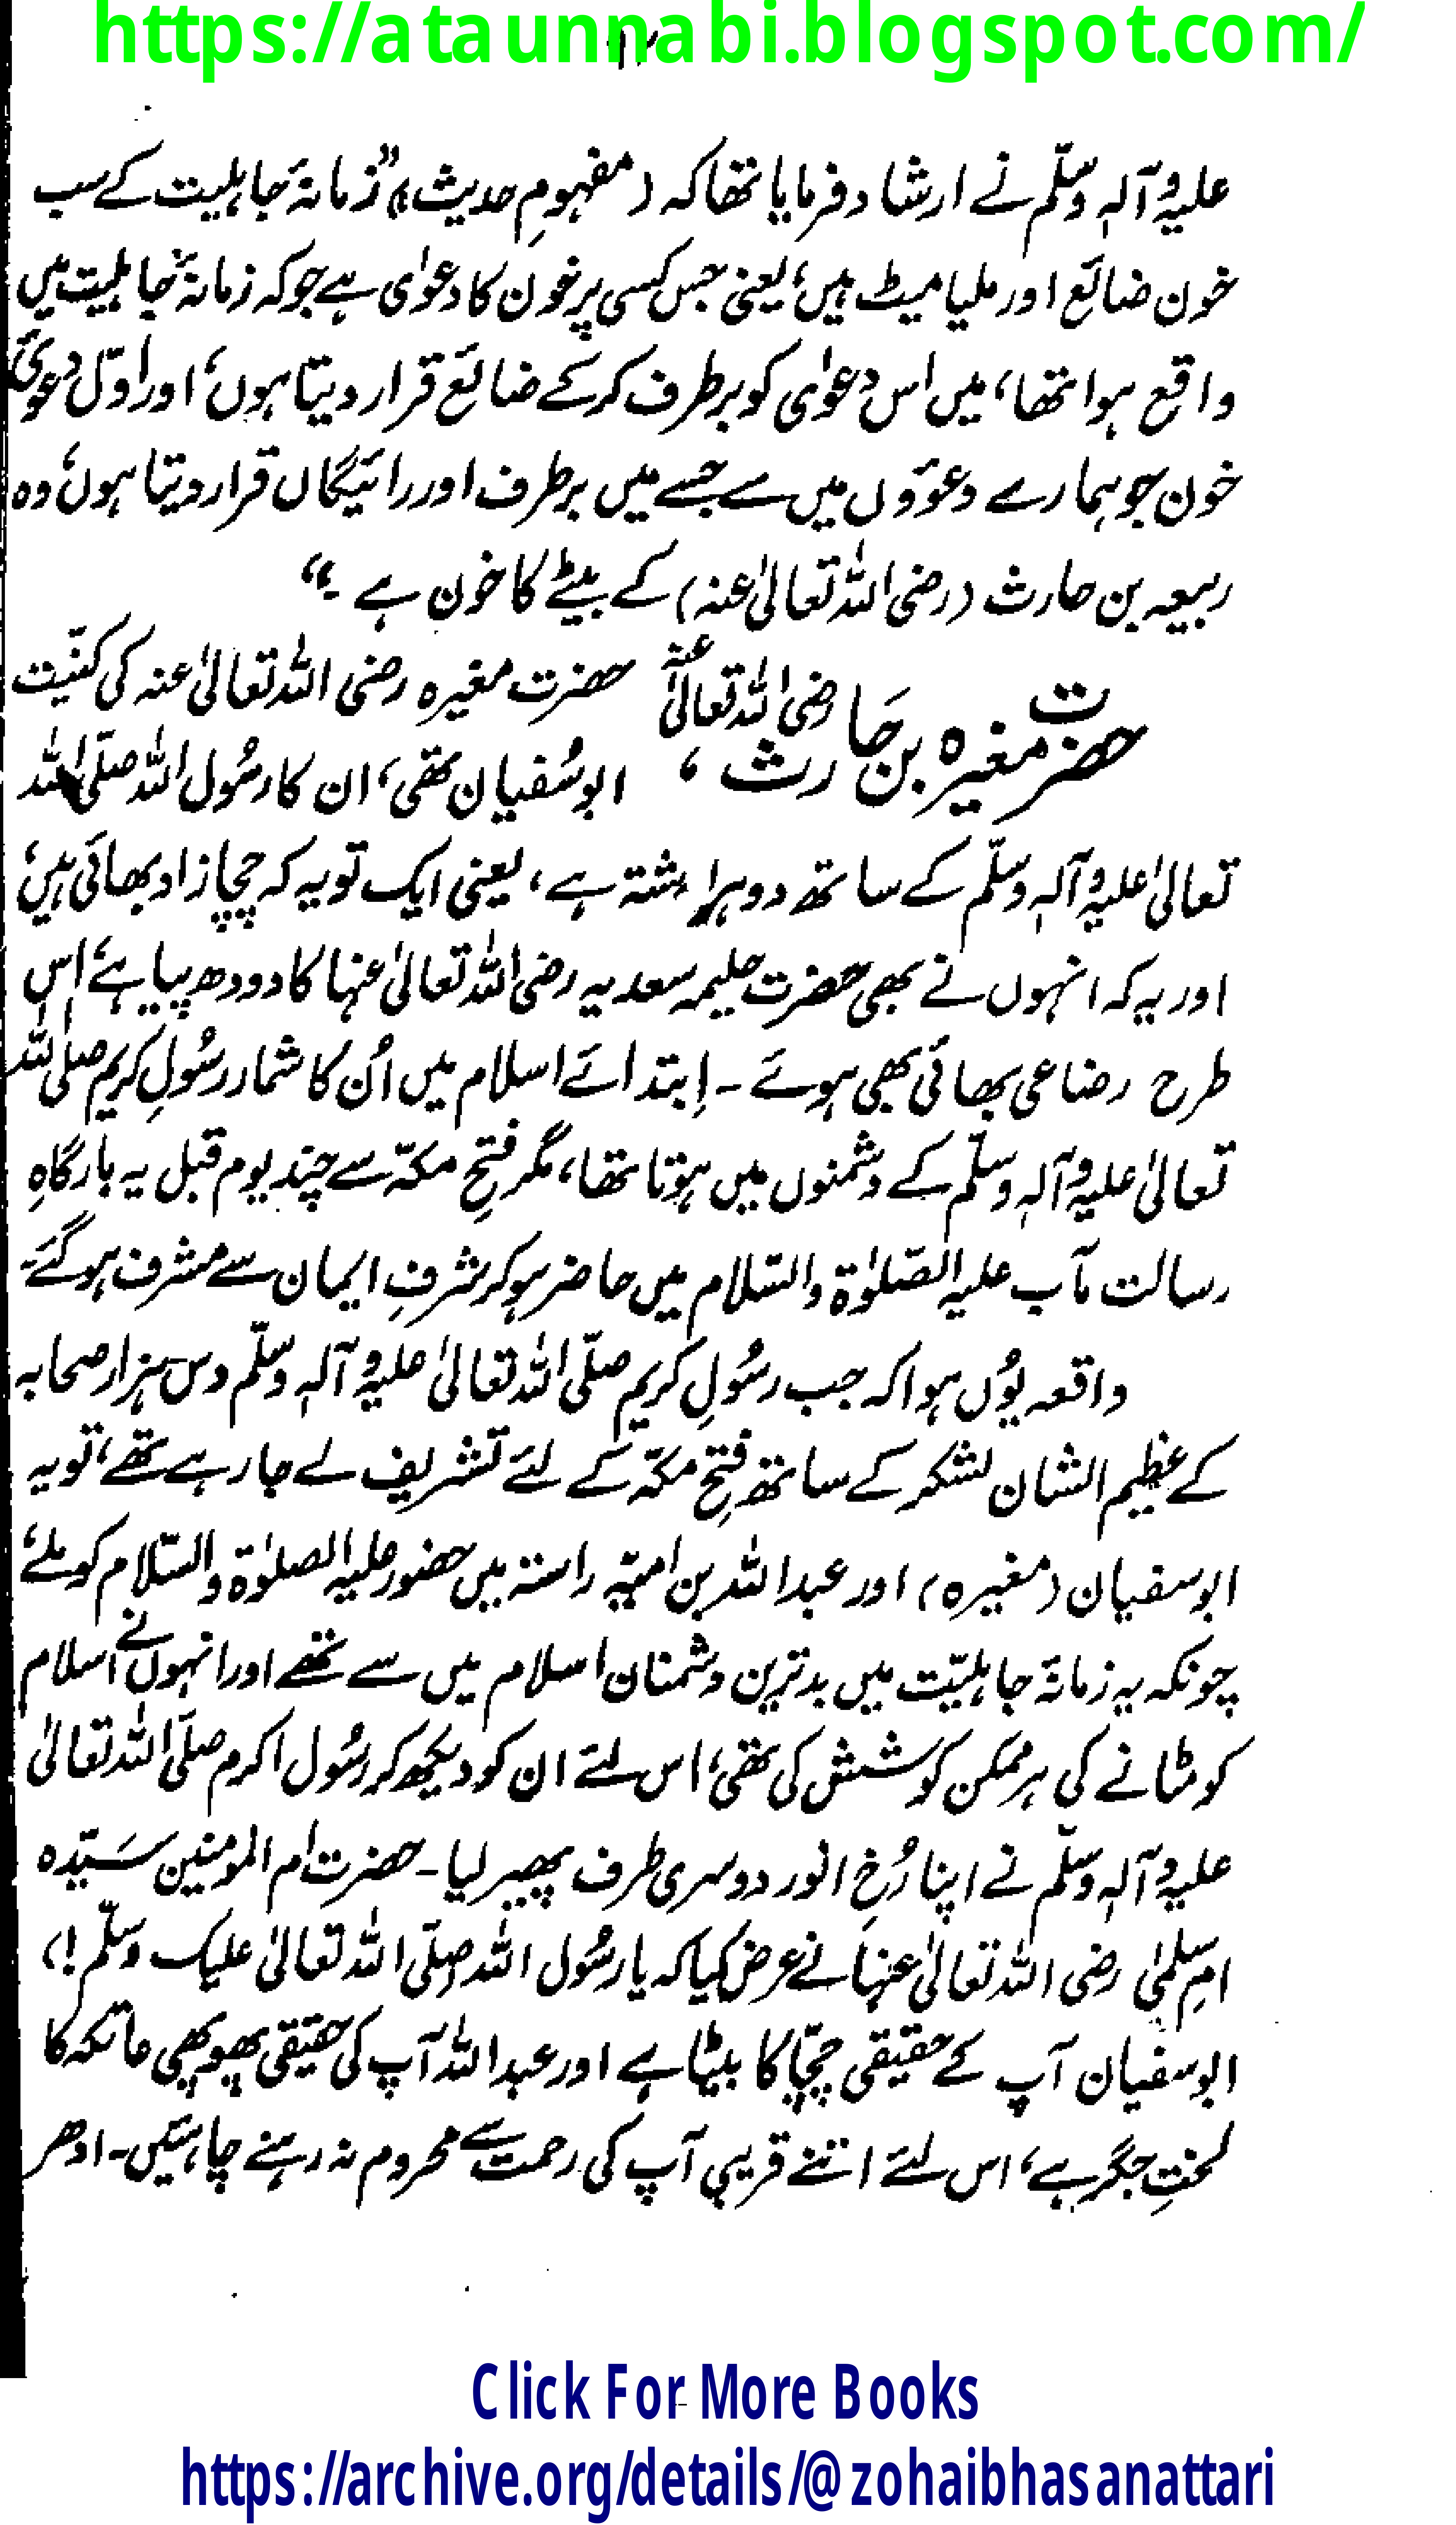 https://ataunnabi.blogspot.com/
علیہ وآلہٖ وسلّم نے ارشاد فرمایا تھا کہ (مفہومِ حدیث) ”زمانۂ جاہلیت کے سب
خون ضائع اور ملیامیٹ ہیں، یعنی جس کسی پر خون کا دعوٰی ہے جو کہ زمانۂ جاہلیت میں
واقع ہوا تھا، میں اس دعوٰی کو برطرف کر کے ضائع قرار دیتا ہوں، اور اوّل دعویٔ
خون جو ہمارے دعوؤں میں سے جسے میں برطرف اور رائیگاں قرار دیتا ہوں، وہ
ربیعہ بن حارث (رضی اللہ تعالیٰ عنہ) کے بیٹے کا خون ہے۔“
حضرت مغیرہ بن حارث رضی اللہ تعالیٰ عنہ، حضرت مغیرہ رضی اللہ تعالیٰ عنہ کی کنیّت
ابوسُفیان تھی، ان کا رسُول اللہ صلّی اللہ
تعالیٰ علیہ وآلہٖ وسلّم کے ساتھ دوہرا رشتہ ہے، یعنی ایک تو یہ کہ چچازاد بھائی ہیں،
اور یہ کہ انہوں نے بھی حضرت حلیمہ سعدیہ رضی اللہ تعالیٰ عنہا کا دودھ پیا ہے، اس
طرح رضاعی بھائی بھی ہوئے۔ اِبتدائے اسلام میں اُن کا شمار رسُولِ کریم صلی اللہ
تعالیٰ علیہ وآلہٖ وسلّم کے دشمنوں میں ہوتا تھا، مگر فتحِ مکہّ سے چند یوم قبل یہ بارگاہِ
رسالت مآب علیہ الصّلوٰۃ والسّلام میں حاضر ہو کر شرفِ ایمان سے مشرف ہو گئے۔
واقعہ یوُں ہوا کہ جب رسُولِ کریم صلّی اللہ تعالیٰ علیہ وآلہٖ وسلّم دس ہزار صحابہ
کے عظیم الشان لشکر کے ساتھ فتحِ مکہّ کے لئے تشریف لے جا رہے تھے، تو یہ
ابوسفیان (مغیرہ) اور عبداللہ بن اُمیّہ راستہ میں حضور علیہ الصلوٰۃ والسّلام کو ملے،
چونکہ یہ زمانۂ جاہلیّت میں بدترین دشمنان اسلام میں سے تھے اور انہوں نے اسلام
کو مٹانے کی ہر ممکن کوشش کی تھی، اس لئے ان کو دیکھ کر رسُول اکرم صلّی اللہ تعالیٰ
علیہ وآلہٖ وسلّم نے اپنا رُخِ انور دوسری طرف پھیر لیا۔ حضرت ام المومنین سَیّدہ
امِ سلمیٰ رضی اللہ تعالیٰ عنہا نے عرض کیا کہ یا رسُول اللہ (صلّی اللہ تعالیٰ علیک وسلّم!)،
ابوسفیان آپ کے حقیقی چچّا کا بیٹا ہے اور عبداللہ آپ کی حقیقی پھوپھی عاتکہ کا
لختِ جگر ہے، اس لئے اتنے قریبی آپ کی رحمت سے محروم نہ رہنے چاہئیں۔ ادھر
Click For More Books
https://archive.org/details/@zohaibhasanattari